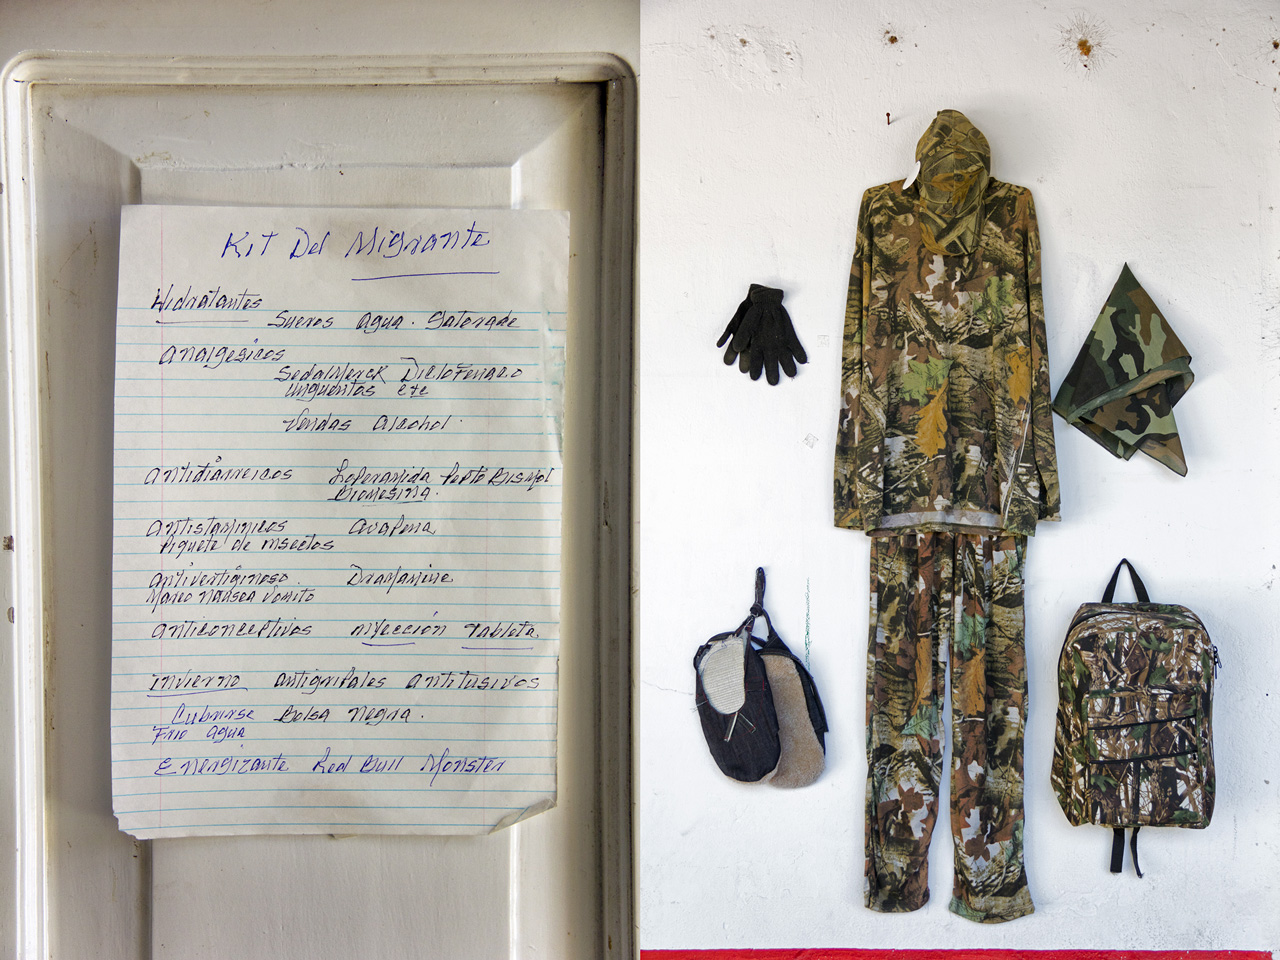 Kit Del Migrante
Hidratantes
Sueros Agua. Gatorade
Analgesicos
SedalMerck Diclofenaco
unguentos etc
Vendas Alcohol.
Antidiarreicos Loperamida Pepto Bismol
Diomesina.
Antistaminicos Avapena
Piquete de insectos
Antivertiginoso. Dramamine
Mareo nausea Vomito
Anticonceptivos inyeccion Tableta
invierno antigripales antitusivos
Cubrirse Bolsa negra.
Frio agua
Energizante Red Bull Monster